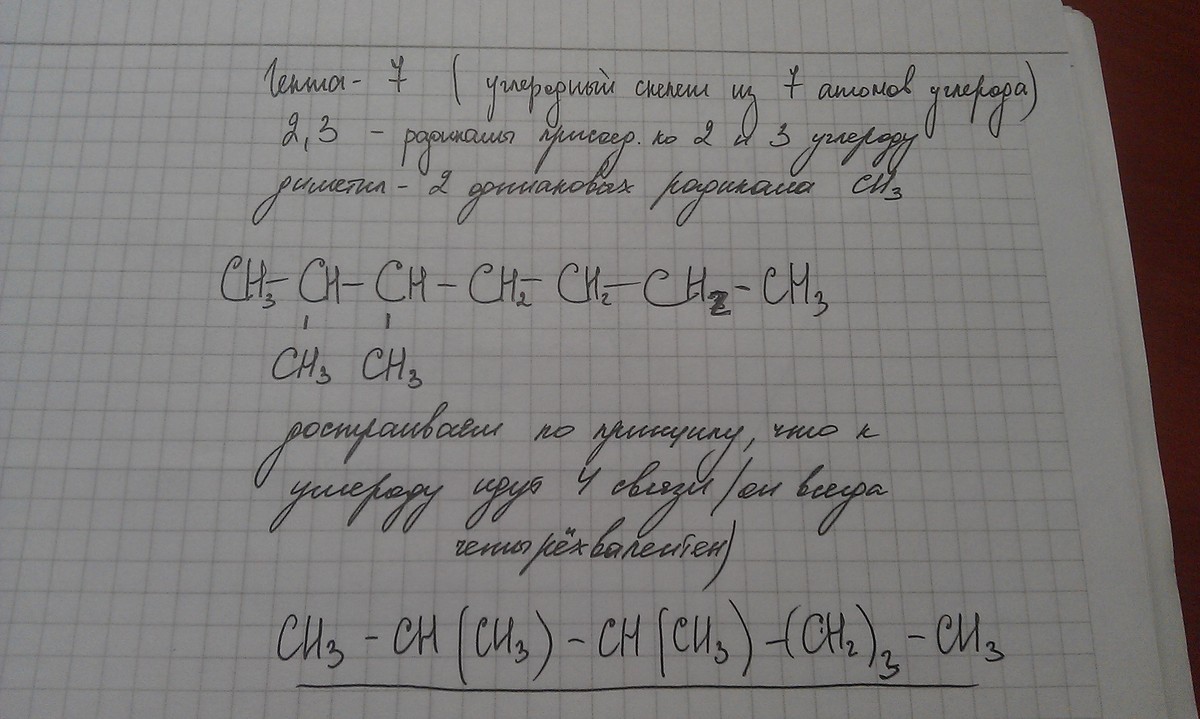 Гепта - 7 ( углеродный скелет из 7 атомов углерода)
2,3 - радикалы присоед. по 2 и 3 углероду
диметил - 2 одинаковых радикала CH₃
CH₃ - CH - CH - CH₂ - CH₂ - CH₂ - CH₃
CH₃ CH₃
достраиваем по принципу, что к
углероду идут 4 связи (он всегда
четырёхвалентен)
CH₃ - CH (CH₃) - CH (CH₃) - (CH₂)₃ - CH₃